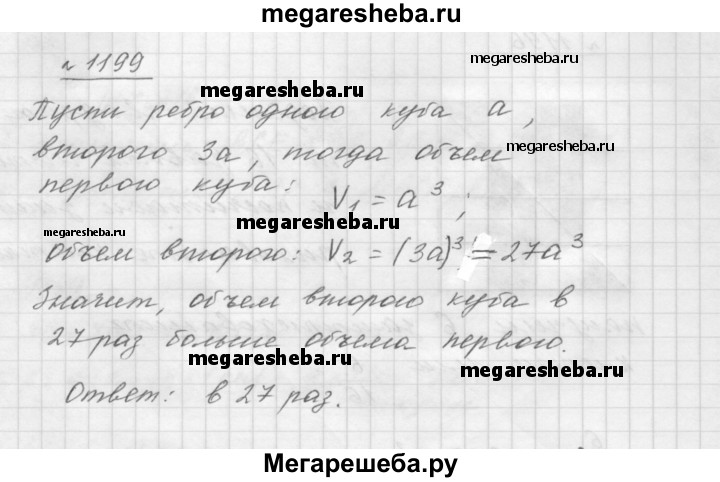 megaresheba.ru
№ 1199
megaresheba.ru
Пусть ребро одного куба a,
megaresheba.ru
второго 3a, тогда объем
первого куба: V₁ = a³;
megaresheba.ru
megaresheba.ru
объем второго: V₂ = (3a)³ = 27a³
Значит, объем второго куба в
27 раз больше объема первого.
megaresheba.ru
megaresheba.ru
Ответ: в 27 раз.
Мегарешеба.ру